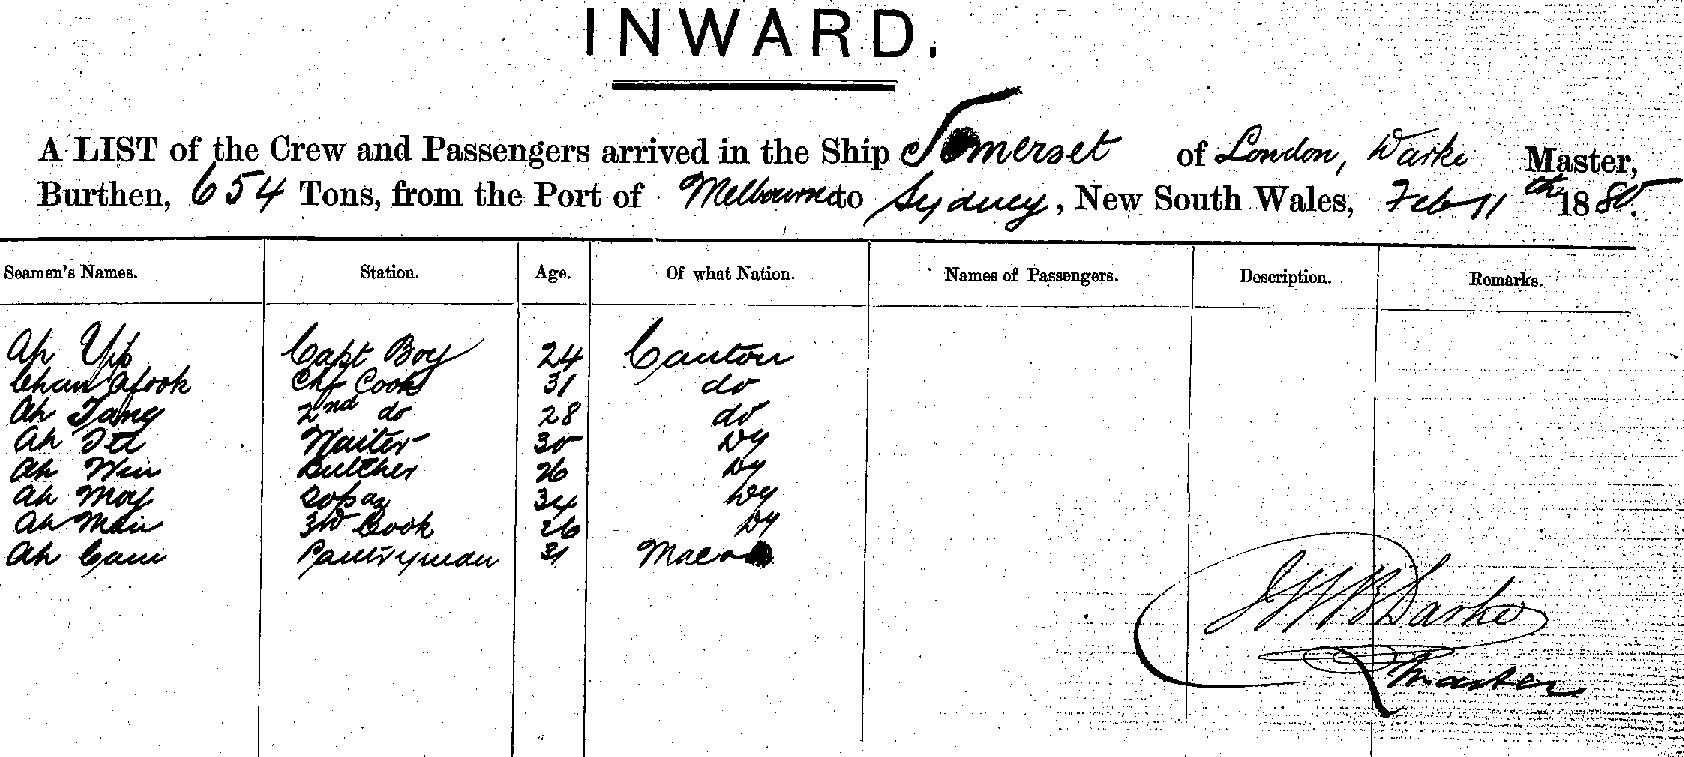 INWARD.
A LIST of the Crew and Passengers arrived in the Ship Somerset of London, Darke Master,
Burthen, 654 Tons, from the Port of Melbourne to Sydney, New South Wales, Feb 11th 1880.
Seamen's Names. Station. Age. Of what Nation. Names of Passengers. Description. Remarks.
Ah Yip Capt Boy 24 Canton
Chun Afook Chf Cook 31 do
Ah Tang 2nd do 28 do
Ah Waiter 30
Ah Win Butcher 26
Ah Moy 34
Ah Man 3rd Cook 26
Ah Cam Pantryman 31 Macao
Darke
Master